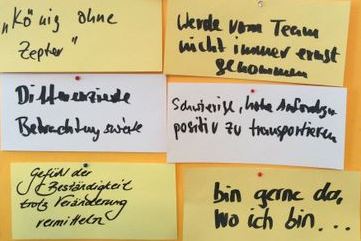 „König ohne
Zepter"
Werde vom Team
nicht immer ernst
genommen
Differenzierte
Betrachtungsweise
Schwierigk., hohe Anforderungen
positiv zu transportieren
Gefühl der
Beständigkeit
trotz Veränderung
vermitteln
bin gerne da,
wo ich bin...